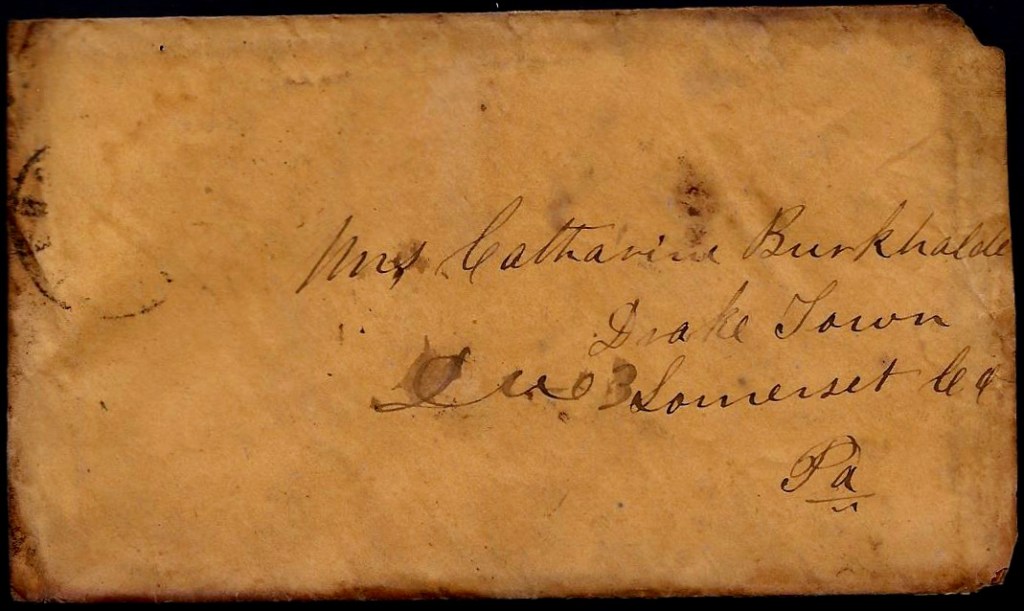 Mrs Catharine Burkhalde
Drake Town
Due 3
Somerset Co
Pa